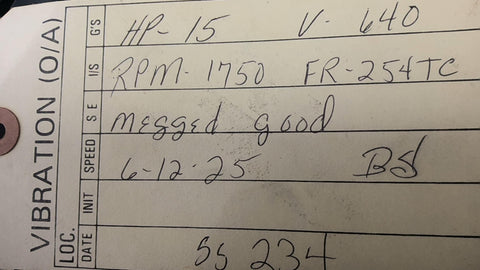 VIBRATION (O/A)
LOC.
DATE INIT SPEED S E I/S G'S
HP-15 V-640
RPM-1750 FR-254TC
megged good
6-12-25 BS
SS 234